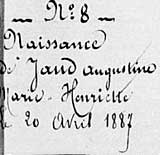 N° 8
Naissance
de Jaud Augustine
Marie-Henriette
le 20 Avril 1887